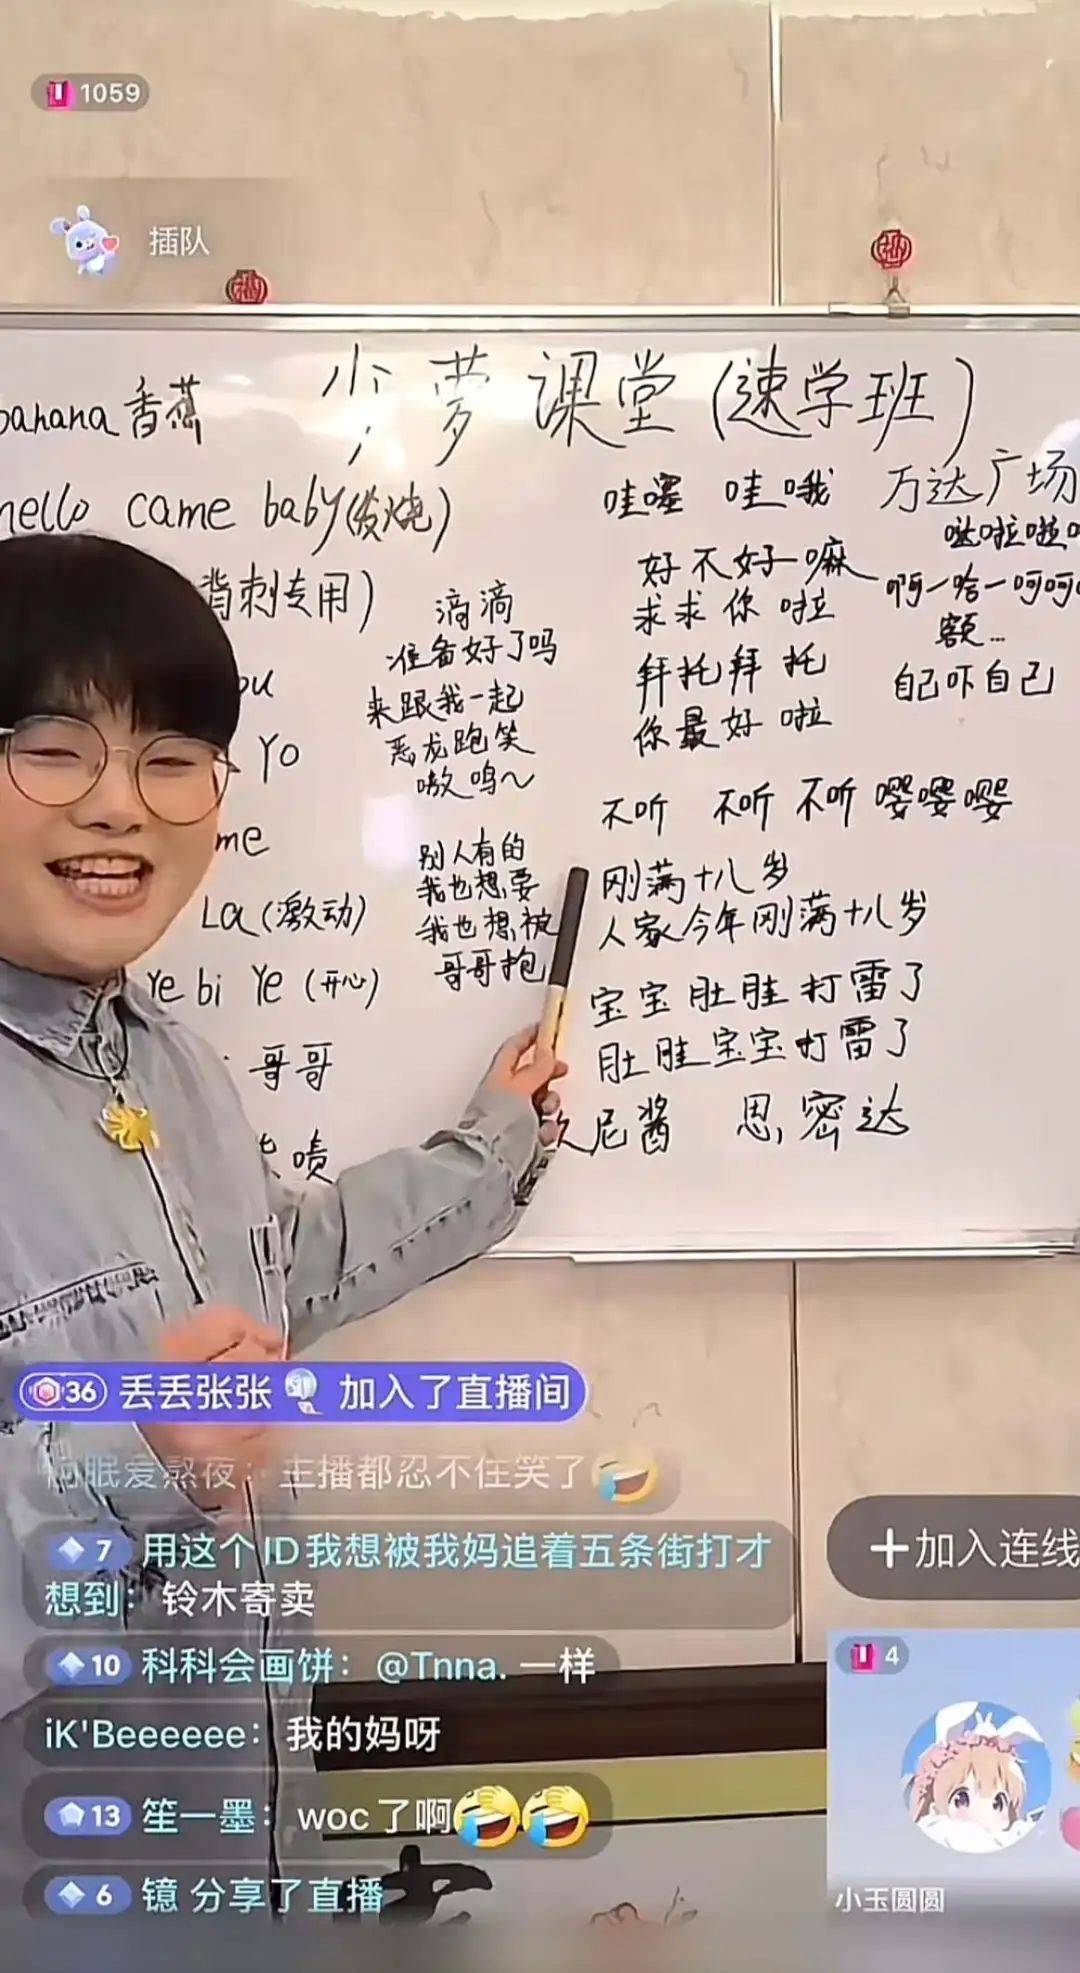 1059
插队
少萝课堂(速学班)
banana香蕉
hello came baby(发烧)
背刺专用)
ou
Yo
me
La(激动)
Ye bi Ye(开心)
哥哥
啧
滴滴
准备好了吗
来跟我一起
恶龙跑笑
嗷呜~
别人有的
我也想要
我也想被
哥哥抱
哇噻 哇哦
好不好嘛
求求你啦
拜托拜托
你最好啦
万达广场
哒啦啦
啊一哈一呵呵
额...
自己吓自己
不听 不听不听嘤嘤嘤
刚满十八岁
人家今年刚满十八岁
宝宝肚肚打雷了
肚肚宝宝打雷了
尼酱 思密达
36 丢丢张张 加入了直播间
眠爱熬夜：主播都忍不住笑了🤣
7 用这个ID我想被我妈追着五条街打才
想到：铃木寄卖
10 科科会画饼：@Tnna. 一样
iK'Beeeeee：我的妈呀
13 笙一墨：woc了啊🤣🤣
6 镱 分享了直播
+加入连线
4
小玉圆圆